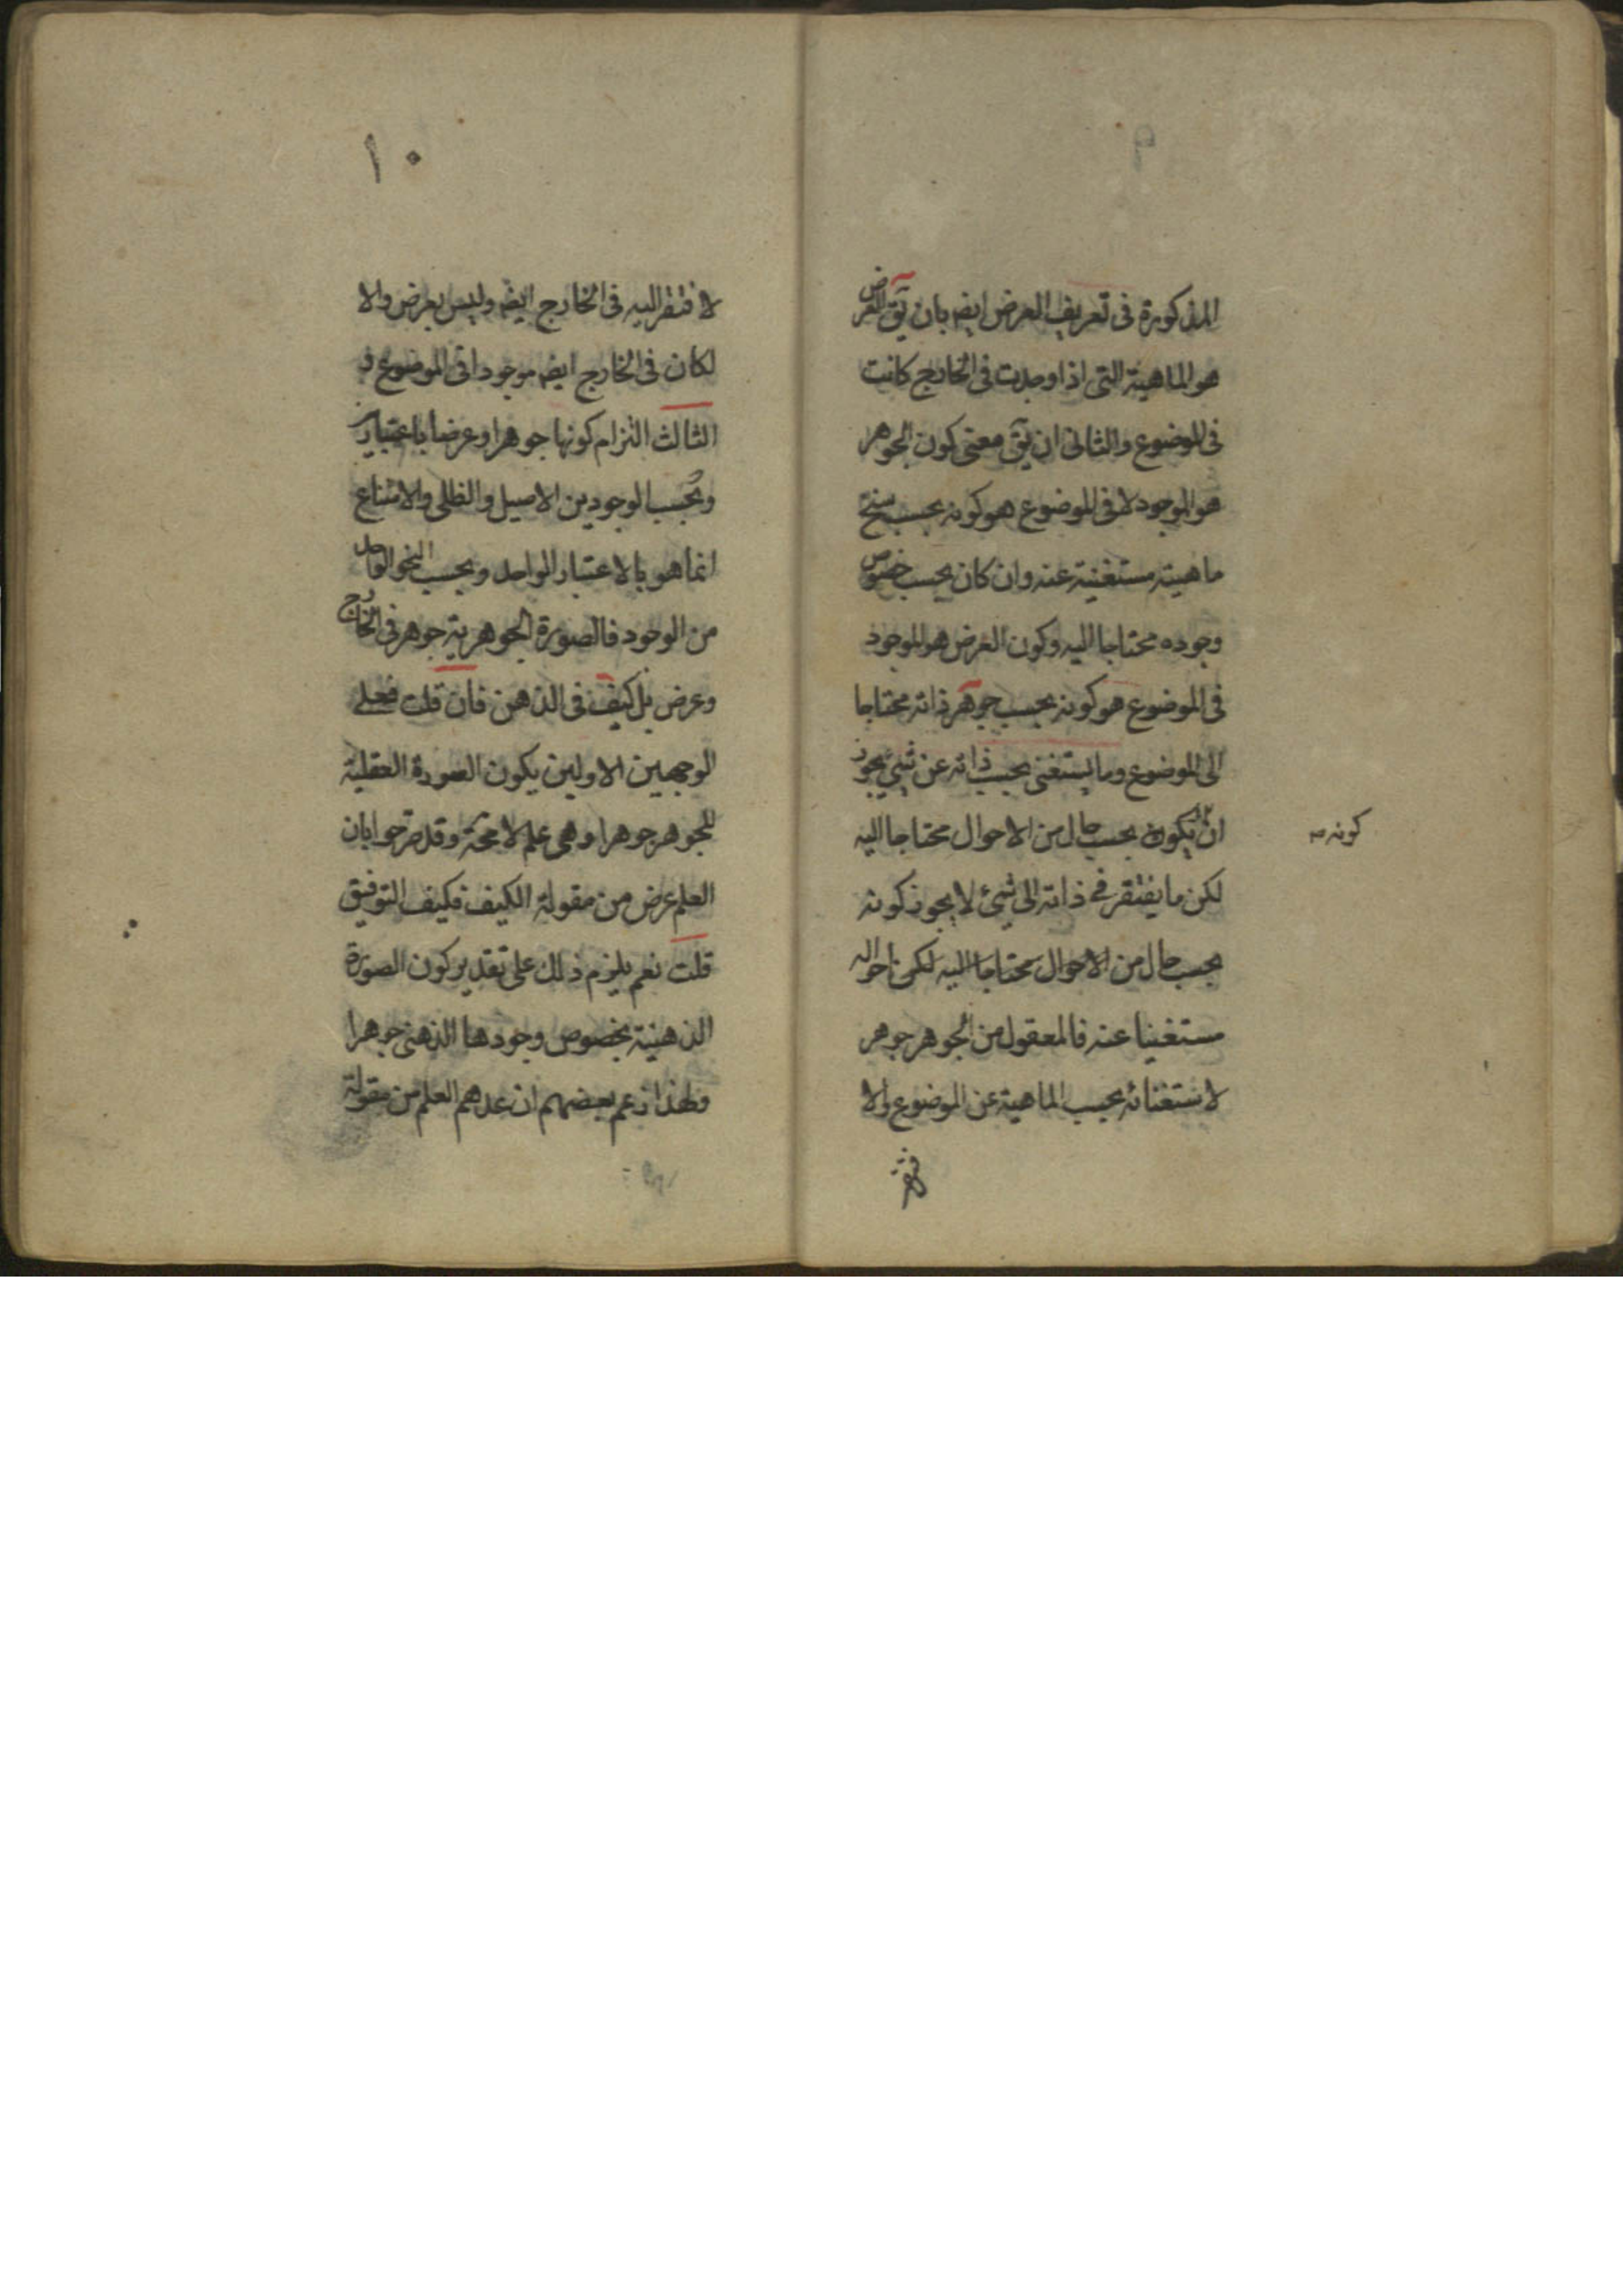 ٩
المذكورة فى تعريف العرض ايضه بان يق العرض
هو الماهية التى اذا وجدت فى الخارج كانت
فى الموضوع والثانى ان يق معنى كون الجوهر
هو الموجود لا فى الموضوع هو كونه بحسب سنخ
ماهيته مستغنية عنه وان كان بحسب خصوص
وجوده محتاجا اليه وكون العرض هو الموجود
فى الموضوع هو كونه بحسب جوهر ذاته محتاجا
الى الموضوع وما يستغنى بحسب ذاته عن شئ يجوز
ان يكون بحسب حال من الاحوال محتاجا اليه
كونه
لكن ما يفتقر فى ذاته الى شئ لا يجوز كونه
بحسب حال من الاحوال محتاجا اليه احواله
مستغنيا عنه فالمعقول من الجوهر جوهر
لاستغنائه بحسب الماهية عن الموضوع والا
١٠
لافتقر اليه فى الخارج ايضه وليس بعرض والا
لكان فى الخارج ايضه موجودا فى الموضوع و
الثالث التزام كونها جوهرا وعرضا باعتبارين
وبحسب الوجودين الاصيل والظلى والامتناع
انما هو بالاعتبار الواحد وبحسب النحو الواحد
من الوجود فالصورة الجوهرية جوهر فى الخارج
وعرض بل كيف فى الذهن فان قلت فعلى
الوجهين الاولين يكون الصورة العقلية
للجوهر جوهرا وهى علم لا محة وقد صرحوا بان
العلم عرض من مقولة الكيف فكيف التوفيق
قلت نعم يلزم ذلك على تقدير كون الصورة
الذهنية بخصوص وجودها الذهنى جوهرا
ولهذا زعم بعضهم ان عدهم العلم من مقولة